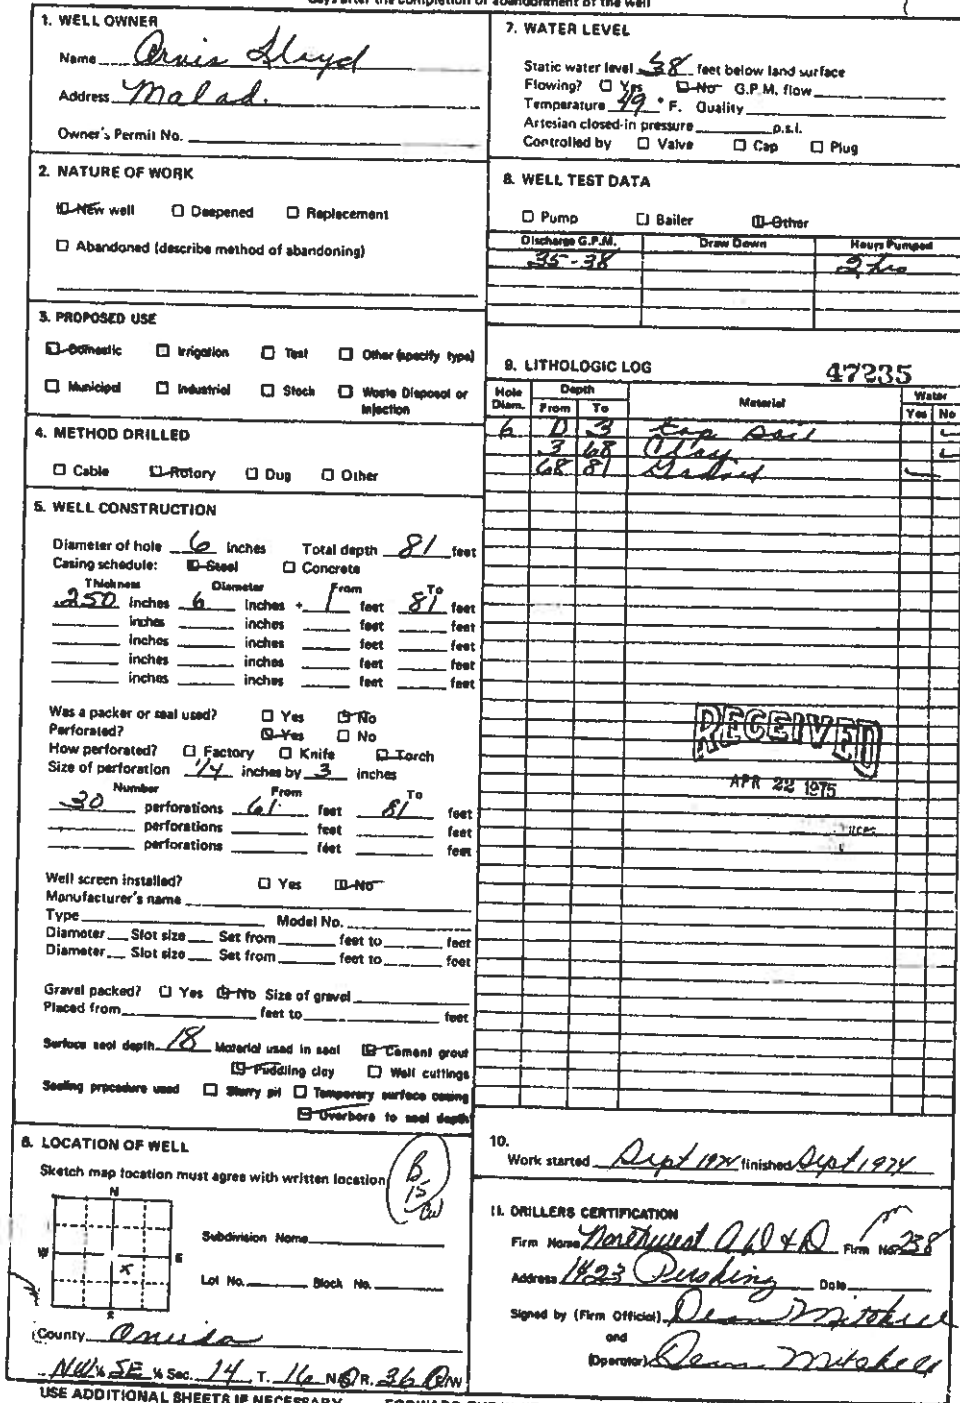 days after the completion or abandonment of the well
1. WELL OWNER
Name Arvis Lloyd
Address Malad.
Owner's Permit No.
2. NATURE OF WORK
New well Deepened Replacement
Abandoned (describe method of abandoning)
3. PROPOSED USE
Domestic Irrigation Test Other (specify type)
Municipal Industrial Stock Waste Disposal or
Injection
4. METHOD DRILLED
Cable Rotary Dug Other
5. WELL CONSTRUCTION
Diameter of hole 6 inches Total depth 81 feet
Casing schedule: Steel Concrete
Thickness Diameter From To
.250 inches 6 inches + 1 feet 81 feet
inches inches feet feet
inches inches feet feet
inches inches feet feet
inches inches feet feet
Was a packer or seal used? Yes No
Perforated? Yes No
How perforated? Factory Knife Torch
Size of perforation 1/4 inches by 3 inches
Number From To
30 perforations 61 feet 81 feet
perforations feet feet
perforations feet feet
Well screen installed? Yes No
Manufacturer's name
Type Model No.
Diameter Slot size Set from feet to feet
Diameter Slot size Set from feet to feet
Gravel packed? Yes No Size of gravel
Placed from feet to feet
Surface seal depth 18 Material used in seal Cement grout
Puddling clay Well cuttings
Sealing procedure used Slurry pit Temporary surface casing
Overbore to seal depth
6. LOCATION OF WELL
Sketch map location must agree with written location
B
15
CW
N
Subdivision Name
W E
X
Lot No. Block No.
S
County Oneida
NW ¼ SE ¼ Sec. 14 T. 16 N/S R. 36 E/W
USE ADDITIONAL SHEETS IF NECESSARY
7. WATER LEVEL
Static water level 58 feet below land surface
Flowing? Yes No G.P.M. flow
Temperature 49 ° F. Quality
Artesian closed-in pressure p.s.i.
Controlled by Valve Cap Plug
8. WELL TEST DATA
Pump Bailer Other
Discharge G.P.M. Draw Down Hours Pumped
35-38 2 hrs
9. LITHOLOGIC LOG 47235
Hole Diam. Depth Material Water
From To Yes No
6 0 3 top soil
3 68 Clay
68 81
RECEIVED
APR 22 1975
10.
Work started Sept 1974 finished Sept 1974
11. DRILLERS CERTIFICATION
Firm Name Northwest A W & D Firm No. 238
Address 1423 Pershing Date
Signed by (Firm Official) Dean Mitchell
and
(Operator) Dean Mitchell